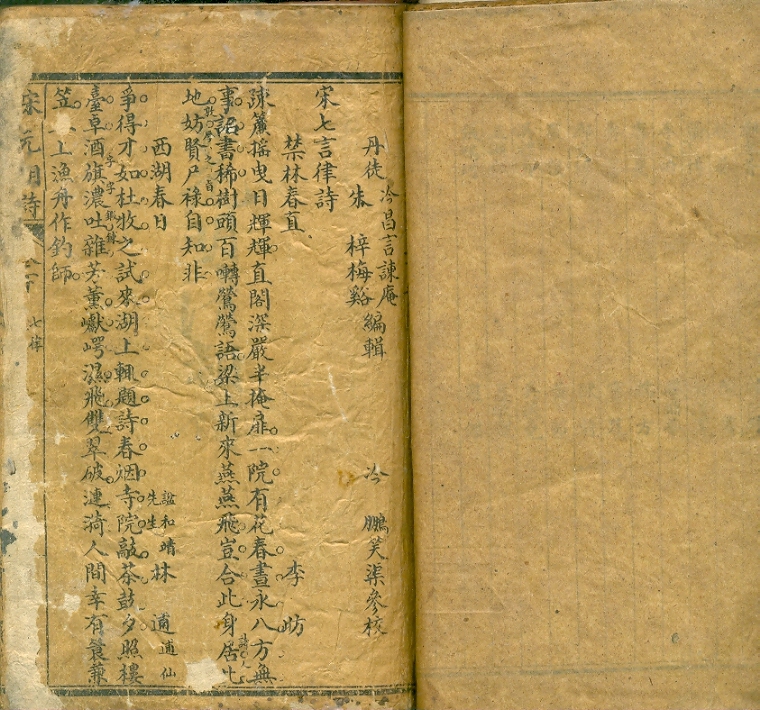 丹徒
冷昌言諫庵
朱 梓梅谿
編輯
冷 鵬笑渠參校
宋七言律詩
禁林春直 李昉
疎簾搖曳日輝輝直閣深嚴半掩扉一院有花春晝永八方無
事詔書稀樹頭百囀鶯鶯語梁上新來燕燕飛豈合此身居此
地妨賢尸祿自知非
西湖春日 諡和靖先生 林逋 逋仙
爭得才如杜牧之試來湖上輒題詩春烟寺院敲茶鼓夕照樓
臺卓酒旗濃吐雜芳薰巘崿濕飛雙翠破漣漪人間幸有簑兼
笠上漁舟作釣師
宋元明詩 七律